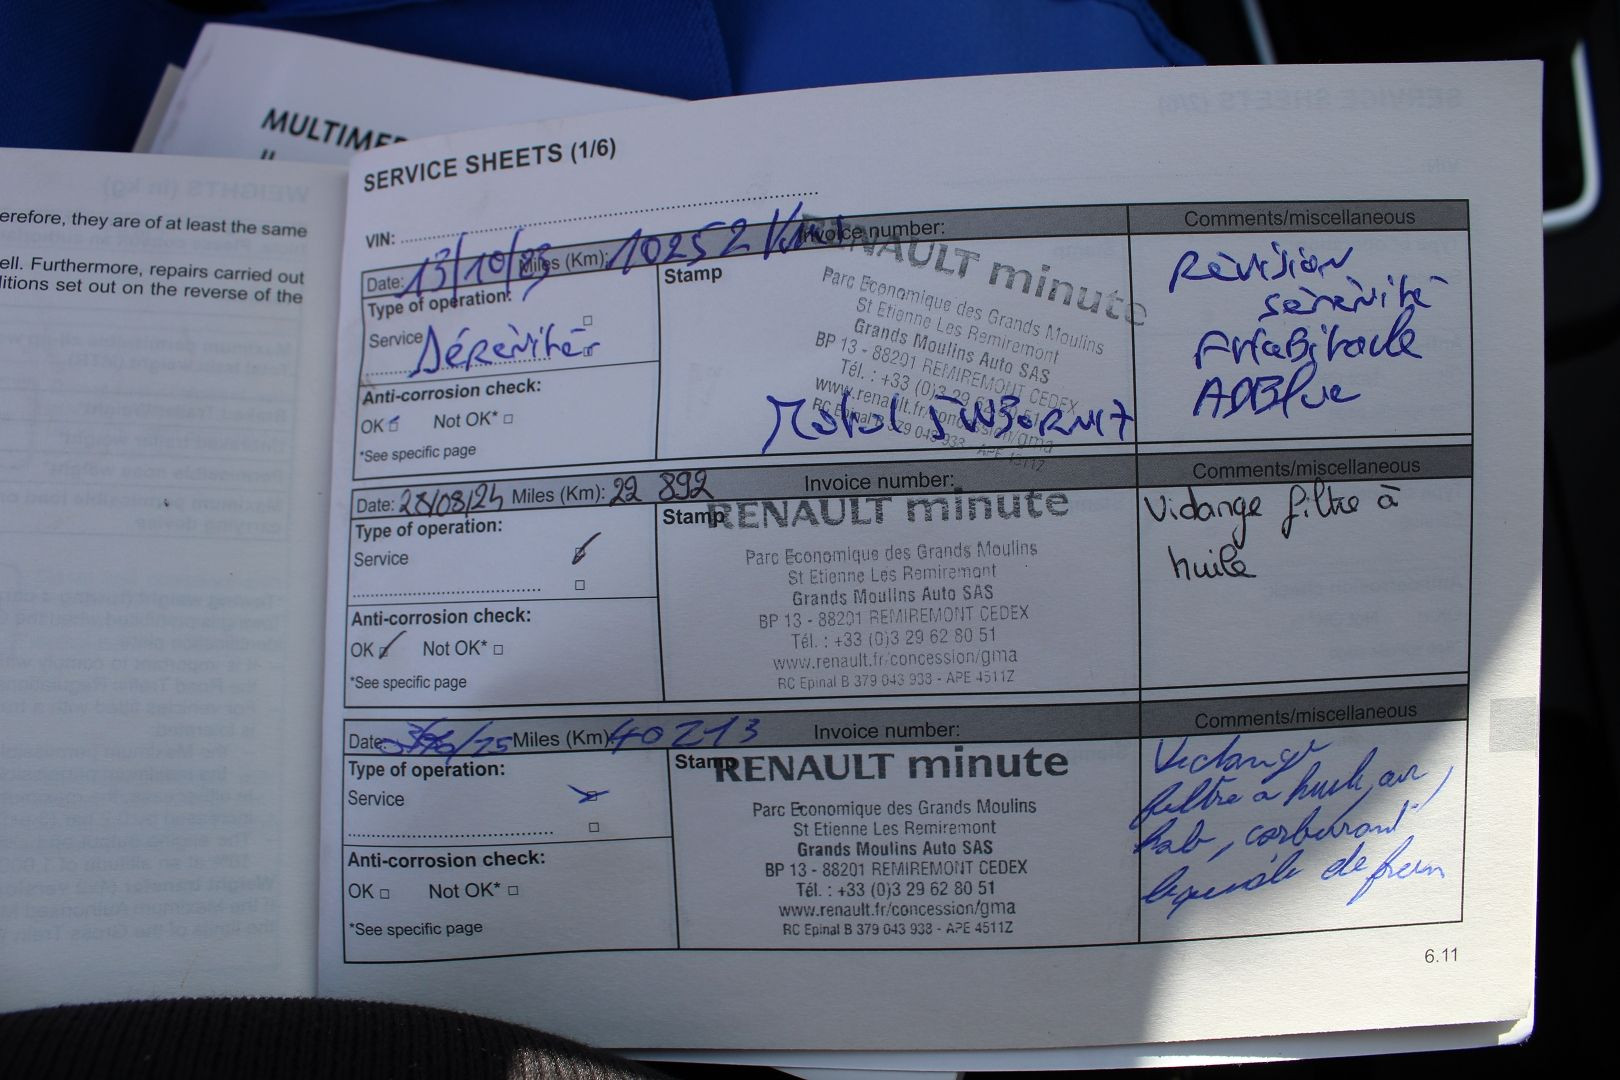 MULTIMED
WEIGHTS (in kg)
erefore, they are of at least the same
ell. Furthermore, repairs carried out
ditions set out on the reverse of the
SERVICE SHEETS (2/6)
SERVICE SHEETS (1/6)
VIN:
Date: 13/10/23 Miles (Km): 10252 Km Invoice number:
Comments/miscellaneous
Type of operation:
Service
Sérénité
Anti-corrosion check:
OK Not OK*
*See specific page
Stamp
RENAULT minute
Parc Economique des Grands Moulins
St Etienne Les Remiremont
Grands Moulins Auto SAS
BP 13 - 88201 REMIREMONT CEDEX
Tél. : +33 (0)3 29 62 80 51
www.renault.fr/concession/gma
RC Epinal B 379 043 933 - APE 4511Z
Révision
sérénité
AdBlue
Date: 28/08/24 Miles (Km): 22 892 Invoice number:
Comments/miscellaneous
Type of operation:
Service
Anti-corrosion check:
OK Not OK*
*See specific page
Stamp
RENAULT minute
Parc Economique des Grands Moulins
St Etienne Les Remiremont
Grands Moulins Auto SAS
BP 13 - 88201 REMIREMONT CEDEX
Tél. : +33 (0)3 29 62 80 51
www.renault.fr/concession/gma
RC Epinal B 379 043 933 - APE 4511Z
Vidange filtre à
huile
Date: /25 Miles (Km): 40213 Invoice number:
Comments/miscellaneous
Type of operation:
Service
Anti-corrosion check:
OK Not OK*
*See specific page
Stamp
RENAULT minute
Parc Economique des Grands Moulins
St Etienne Les Remiremont
Grands Moulins Auto SAS
BP 13 - 88201 REMIREMONT CEDEX
Tél. : +33 (0)3 29 62 80 51
www.renault.fr/concession/gma
RC Epinal B 379 043 933 - APE 4511Z
Vidange
filtre a huile, air,
hab, carburant
liquide de frein
6.11